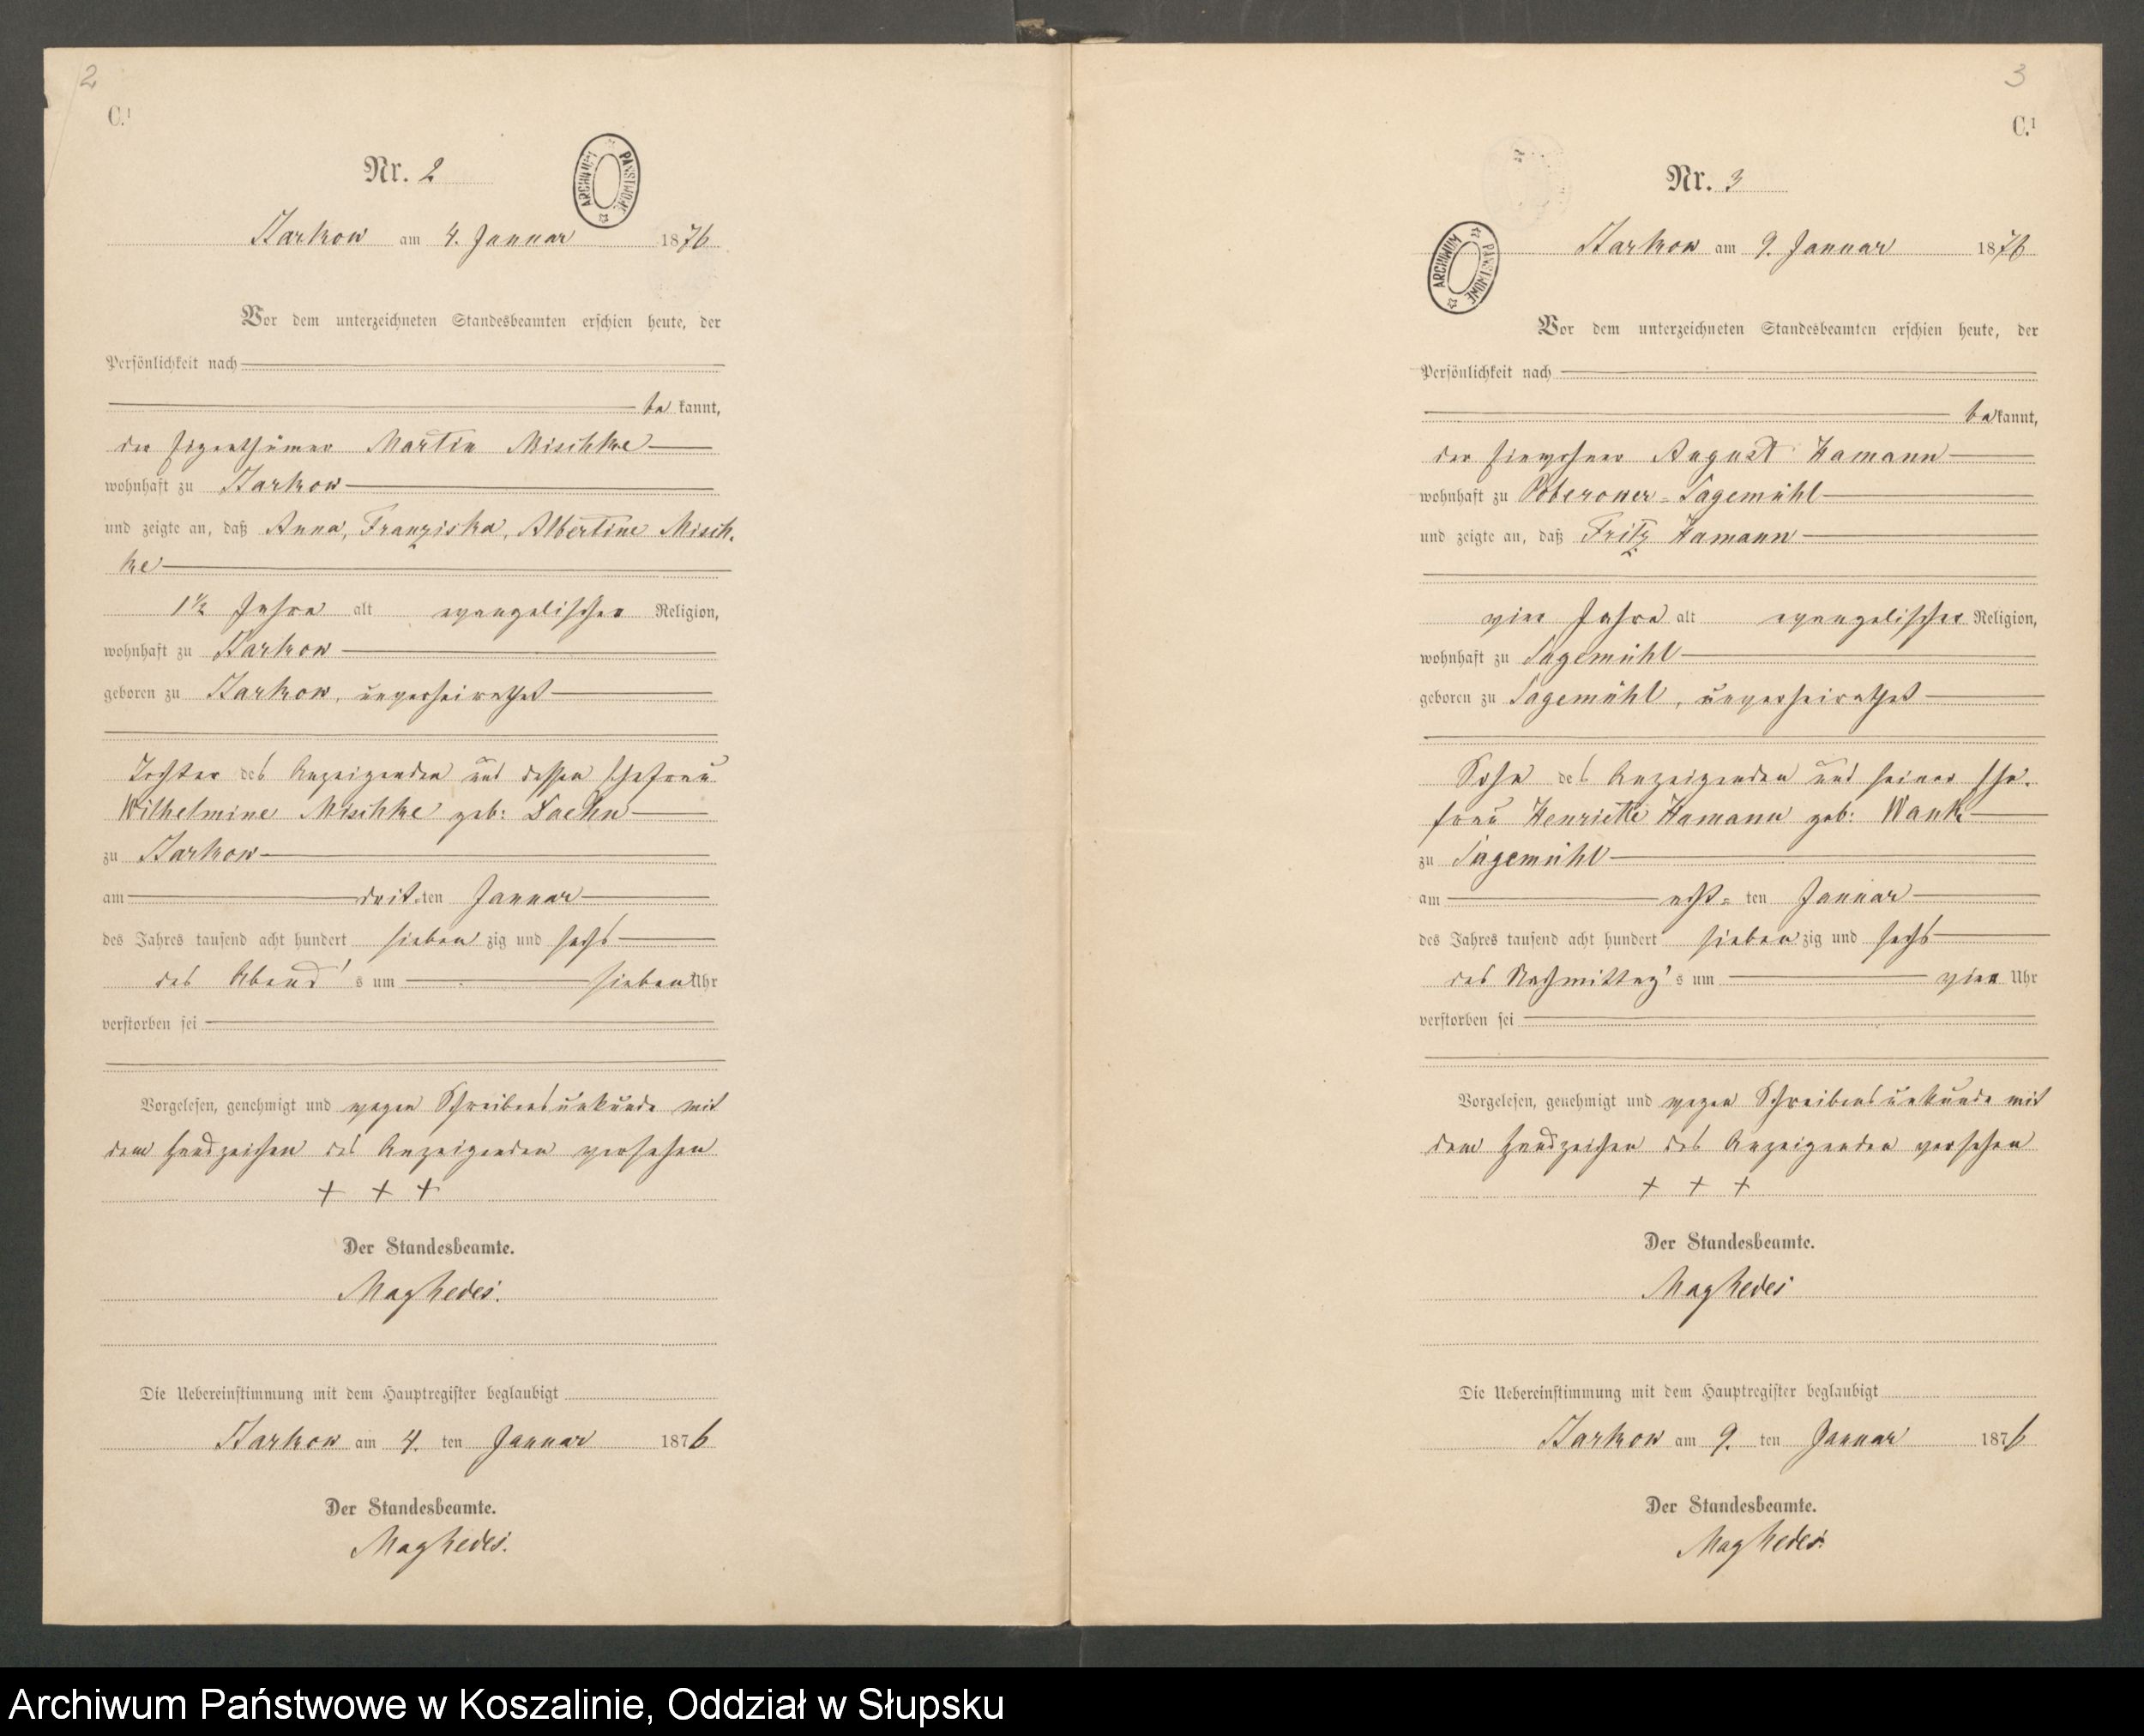 2
C.¹
Nr. 2
ARCHIWUM PAŃSTWOWE
Starkow am 4. Januar 1876
Vor dem unterzeichneten Standesbeamten erschien heute, der
Persönlichkeit nach
be kannt,
der Eigenthümer Martin Mischke
wohnhaft zu Starkow
und zeigte an, daß Anna, Franziska, Albertine Misch-
ke
1½ Jahre alt evangelischer Religion,
wohnhaft zu Starkow
geboren zu Starkow, unverheirathet
Tochter des Anzeigenden und dessen Ehefrau
Wilhelmine Mischke geb:
zu Starkow
am dritten Januar
des Jahres tausend acht hundert sieben zig und sechs
des Abend's um sieben Uhr
verstorben sei
Vorgelesen, genehmigt und wegen Schreibensunkunde mit
dem Handzeichen des Anzeigenden versehen
+ + +
Der Standesbeamte.
Die Uebereinstimmung mit dem Hauptregister beglaubigt
Starkow am 4. ten Januar 1876
Der Standesbeamte.
3
C.¹
Nr. 3
ARCHIWUM PAŃSTWOWE
Starkow am 9. Januar 1876
Vor dem unterzeichneten Standesbeamten erschien heute, der
Persönlichkeit nach
bekannt,
der Einwohner August Hamann
wohnhaft zu Sagemühl
und zeigte an, daß Fritz Hamann
vier Jahre alt evangelischer Religion,
wohnhaft zu Sagemühl
geboren zu Sagemühl, unverheirathet
Sohn des Anzeigenden und seiner Ehe-
frau Henriette Hamann geb:
zu Sagemühl
am acht- ten Januar
des Jahres tausend acht hundert siebenzig und sechs
des Nachmittag's um vier Uhr
verstorben sei
Vorgelesen, genehmigt und wegen Schreibensunkunde mit
dem Handzeichen des Anzeigenden versehen
+ + +
Der Standesbeamte.
Die Uebereinstimmung mit dem Hauptregister beglaubigt
Starkow am 9. ten Januar 1876
Der Standesbeamte.
Archiwum Państwowe w Koszalinie, Oddział w Słupsku